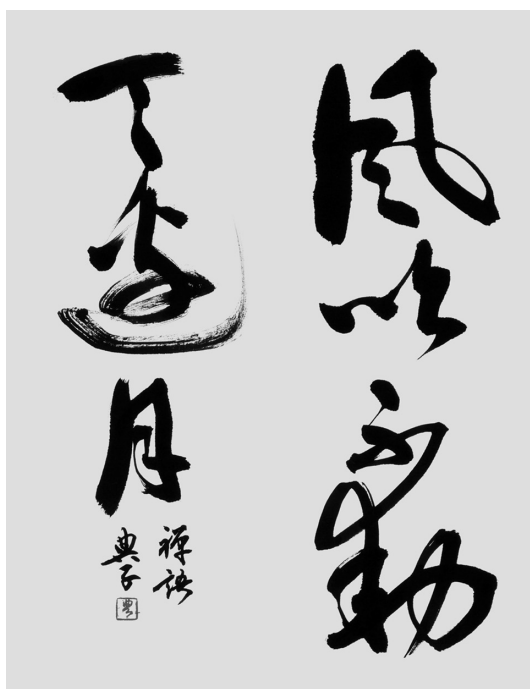 風吹不動
天邊月
禅語
典子